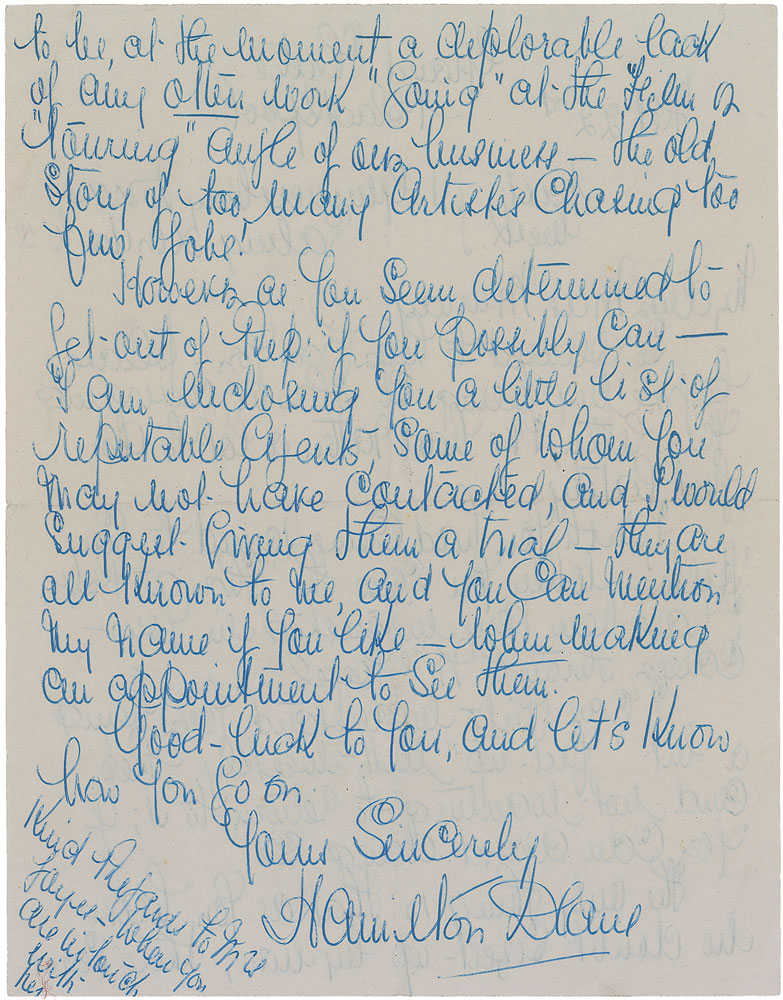 to be, at the moment a deplorable lack
of any other work "going" at the "Film or
"touring" angle of our business — the old
story of too many Artistes Chasing too
few jobs!
However as you seem determined to
get out of Rep: if you possibly can —
I am enclosing you a little list of
reputable Agents, some of whom you
may not have contacted, and I would
suggest giving them a trial — they are
all known to me, and you can mention
my name if you like — when making
an appointment to see them.
Good-luck to you, and let's know
how you go on.
Yours Sincerely
Hamilton Deane
Kind Regards to
when you
are in touch
with
her